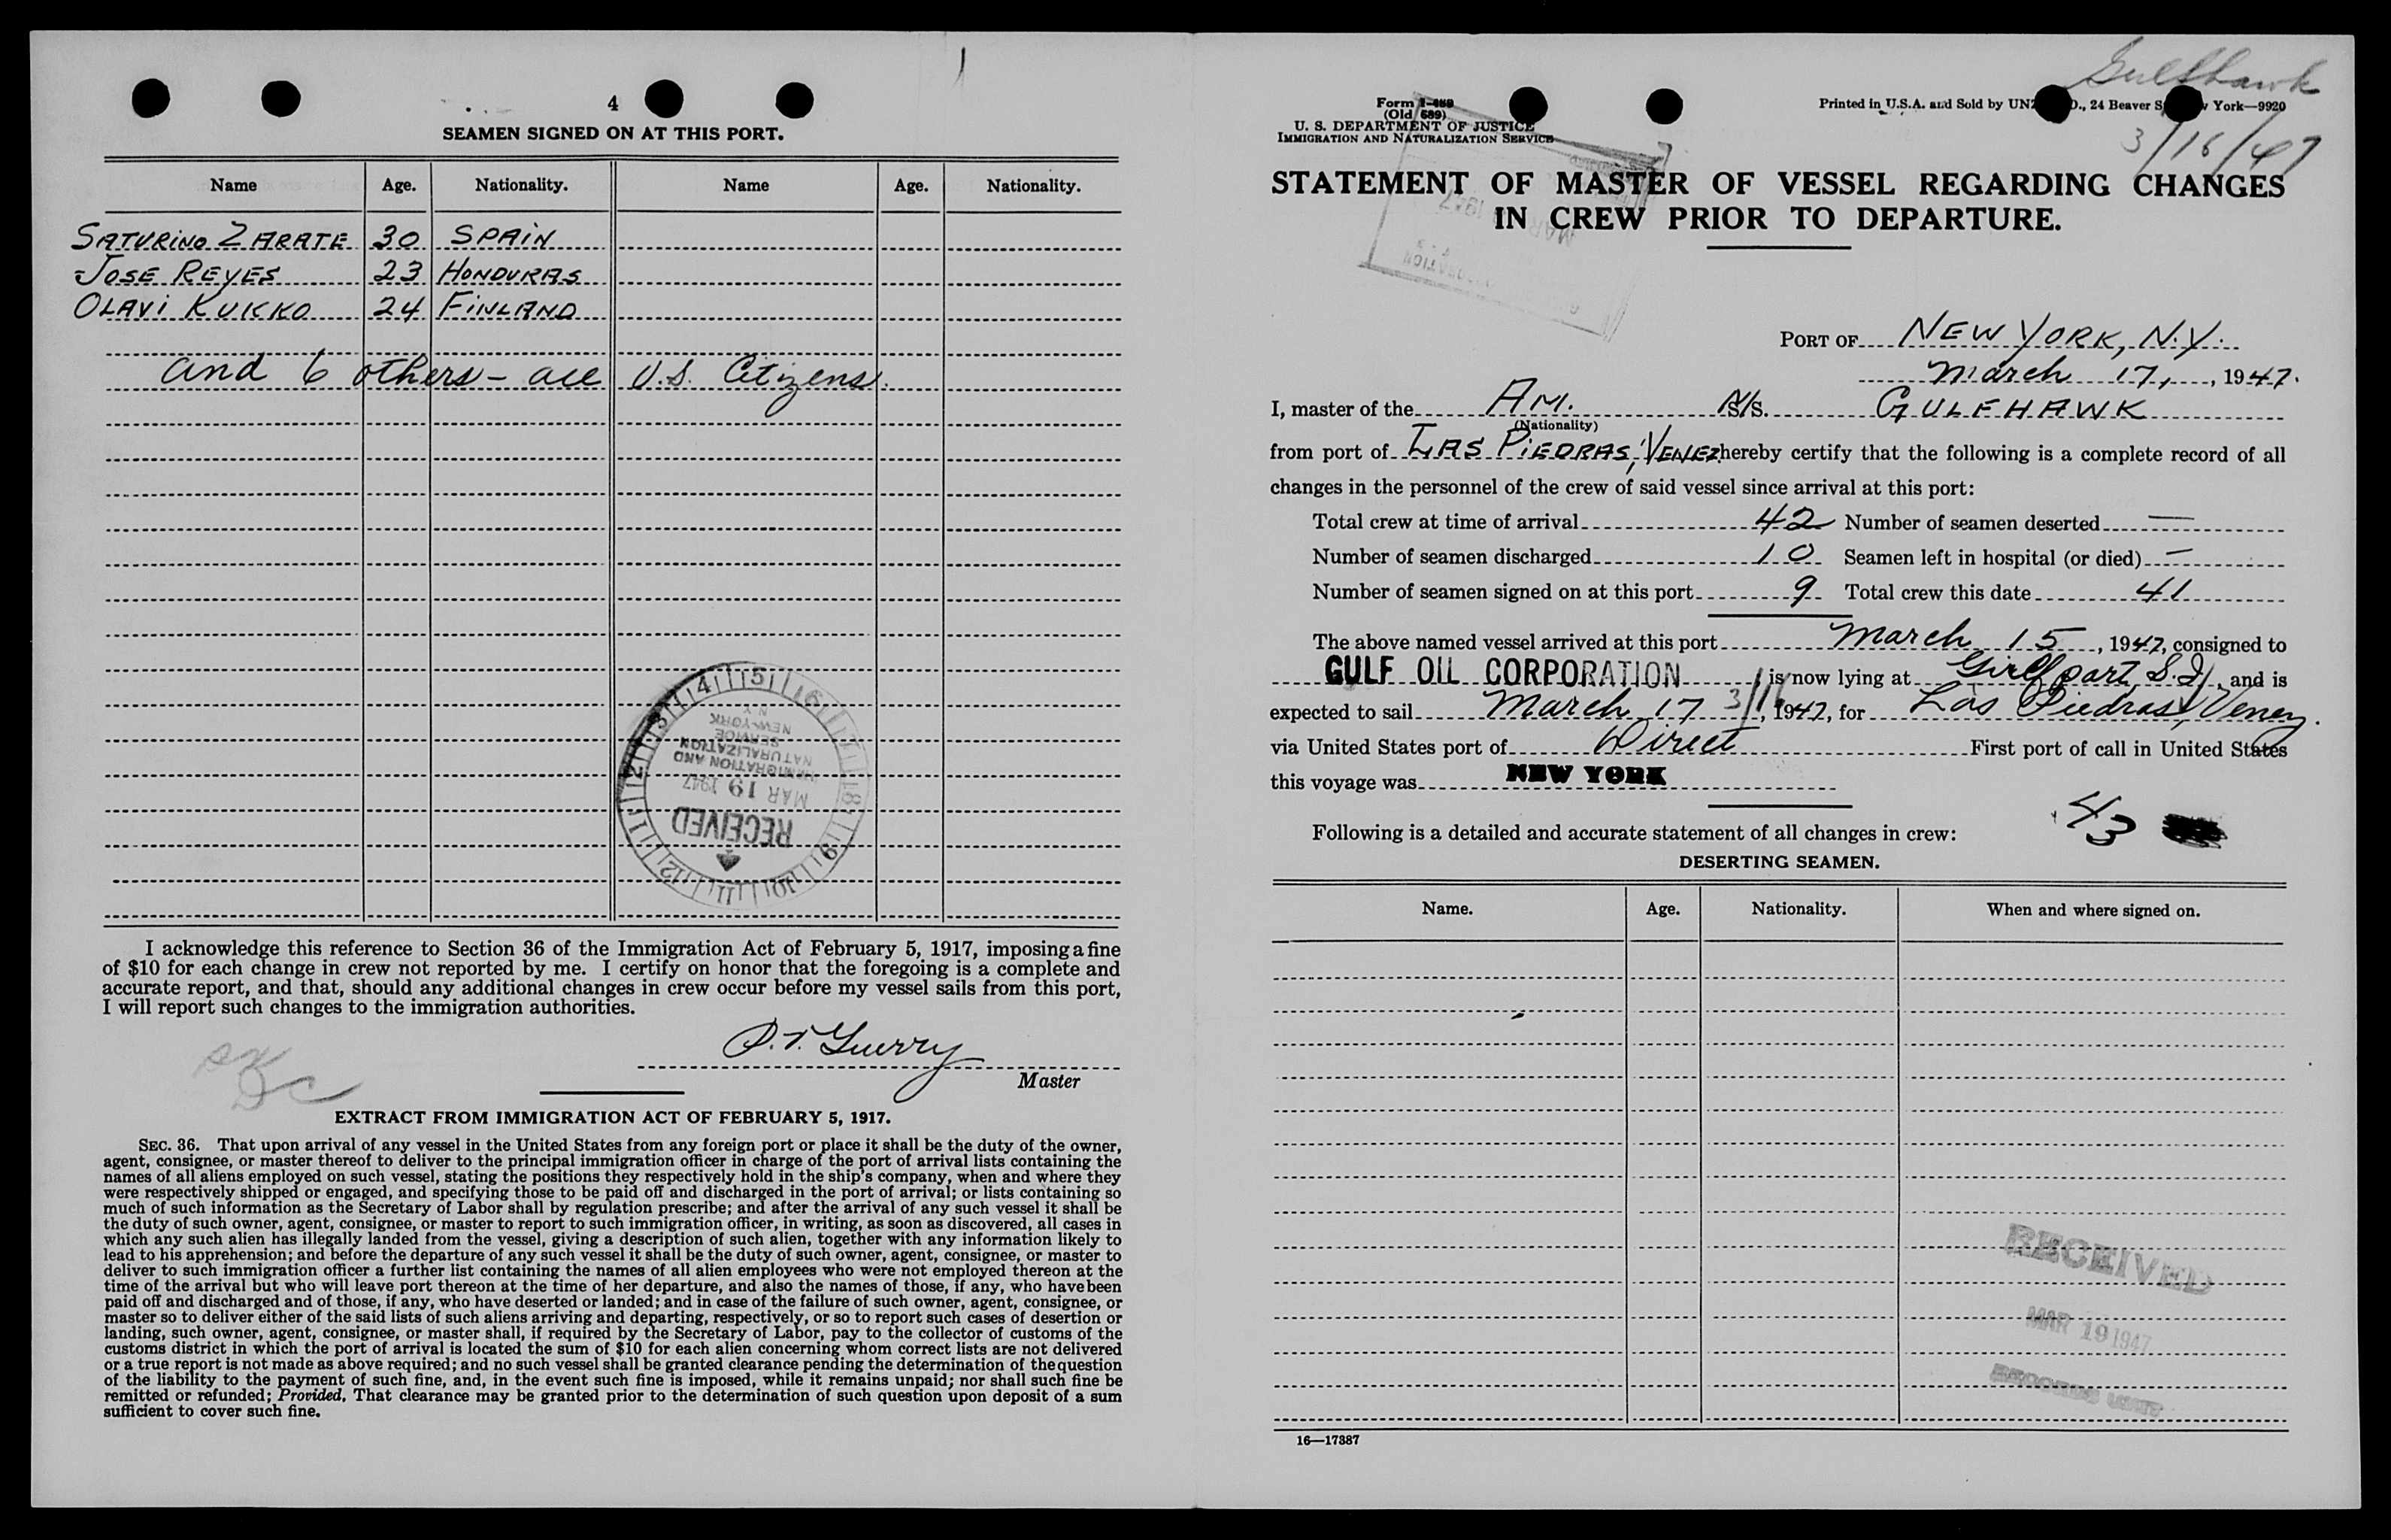 4
SEAMEN SIGNED ON AT THIS PORT.
Name Age. Nationality. Name Age. Nationality.
SATURINO ZARATE 30 SPAIN
JOSE REYES 23 HONDURAS
OLAVI KUKKO 24 FINLAND
and 6 others - all U.S. Citizens.
RECEIVED
MAR 19 1947
IMMIGRATION AND
NATURALIZATION
SERVICE
NEW YORK
N.Y.
I acknowledge this reference to Section 36 of the Immigration Act of February 5, 1917, imposing a fine
of $10 for each change in crew not reported by me. I certify on honor that the foregoing is a complete and
accurate report, and that, should any additional changes in crew occur before my vessel sails from this port,
I will report such changes to the immigration authorities.
P.T. Guerry
Master
EXTRACT FROM IMMIGRATION ACT OF FEBRUARY 5, 1917.
SEC. 36. That upon arrival of any vessel in the United States from any foreign port or place it shall be the duty of the owner,
agent, consignee, or master thereof to deliver to the principal immigration officer in charge of the port of arrival lists containing the
names of all aliens employed on such vessel, stating the positions they respectively hold in the ship's company, when and where they
were respectively shipped or engaged, and specifying those to be paid off and discharged in the port of arrival; or lists containing so
much of such information as the Secretary of Labor shall by regulation prescribe; and after the arrival of any such vessel it shall be
the duty of such owner, agent, consignee, or master to report to such immigration officer, in writing, as soon as discovered, all cases in
which any such alien has illegally landed from the vessel, giving a description of such alien, together with any information likely to
lead to his apprehension; and before the departure of any such vessel it shall be the duty of such owner, agent, consignee, or master to
deliver to such immigration officer a further list containing the names of all alien employees who were not employed thereon at the
time of the arrival but who will leave port thereon at the time of her departure, and also the names of those, if any, who have been
paid off and discharged and of those, if any, who have deserted or landed; and in case of the failure of such owner, agent, consignee, or
master so to deliver either of the said lists of such aliens arriving and departing, respectively, or so to report such cases of desertion or
landing, such owner, agent, consignee, or master shall, if required by the Secretary of Labor, pay to the collector of customs of the
customs district in which the port of arrival is located the sum of $10 for each alien concerning whom correct lists are not delivered
or a true report is not made as above required; and no such vessel shall be granted clearance pending the determination of the question
of the liability to the payment of such fine, and, in the event such fine is imposed, while it remains unpaid; nor shall such fine be
remitted or refunded; Provided, That clearance may be granted prior to the determination of such question upon deposit of a sum
sufficient to cover such fine.
Gulfhawk
3/16/47
Form I-489
(Old 689)
U. S. DEPARTMENT OF JUSTICE
IMMIGRATION AND NATURALIZATION SERVICE
Printed in U.S.A. and Sold by UNZ O., 24 Beaver S York—9920
STATEMENT OF MASTER OF VESSEL REGARDING CHANGES
IN CREW PRIOR TO DEPARTURE.
PORT OF NEW YORK, N.Y.
March 17, 1947.
I, master of the AM. S/S. GULFHAWK
(Nationality)
from port of LAS PIEDRAS, VENEZ hereby certify that the following is a complete record of all
changes in the personnel of the crew of said vessel since arrival at this port:
Total crew at time of arrival 42 Number of seamen deserted —
Number of seamen discharged 10 Seamen left in hospital (or died) —
Number of seamen signed on at this port 9 Total crew this date 41
The above named vessel arrived at this port March 15, 1947, consigned to
GULF OIL CORPORATION is now lying at Gulfport, S.I., and is
expected to sail March 17 , 1947, for Las Piedras, Venez.
via United States port of Direct First port of call in United States
this voyage was NEW YORK
43
Following is a detailed and accurate statement of all changes in crew:
DESERTING SEAMEN.
Name. Age. Nationality. When and where signed on.
RECEIVED
MAR 19 1947
RECORDS UNIT
16—17387